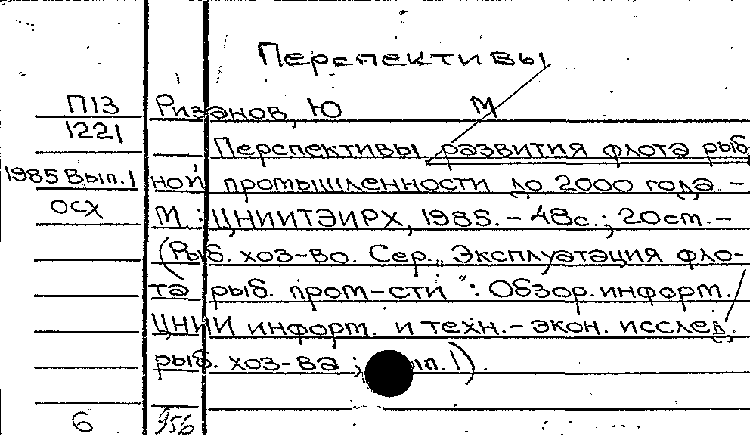 Перспективы
П13 Ризанов, Ю М
1221
Перспективы развития флота рыб
1985 Вып.1 ной промышленности до 2000 года. –
ОСХ М : ЦНИИТЭИРХ, 1985. – 48с.; 20ст. –
(Рыб. хоз-во. Сер. „Эксплуатация фло-
та рыб. пром-сти“: Обзор. информ.
ЦНИИ информ. и техн.-экон. исслед.
рыб. хоз-ва ; 1)
6 956